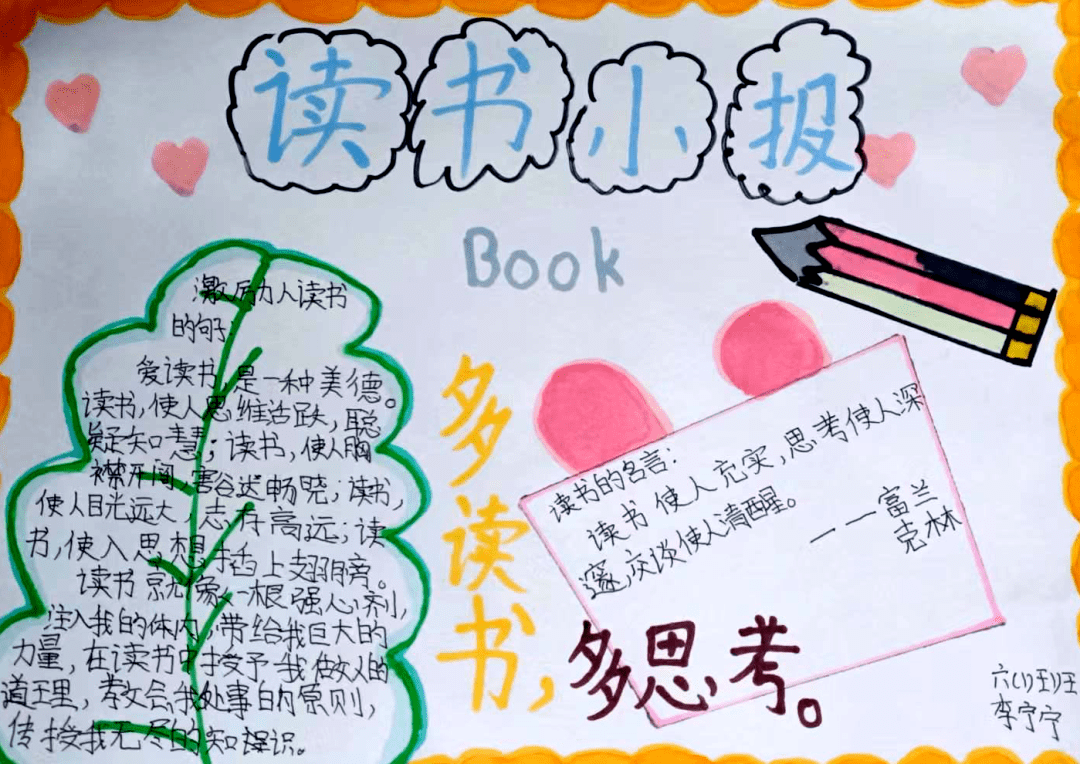 读书小报
Book
激厉力人读书
的句子:
爱读书,是一种美德。
读书,使人思维活跃,聪
疑知慧;读书,使人胸
襟开阔,害谷达畅晓;读书,
使人目光远大,志存高远;读
书,使入思想插上翅膀。
读书就像一根强心剂,
注入我的体内,带给我巨大的
力量,在读书中授予我做人的
道王里,教会我处事的原则,
传授我无尽的知识。
多读书,
多思考。
读书的名言:
读书使人充实,思考使人深
邃,交谈使人清醒。
——富兰
克林
六(1)班
李宁宁